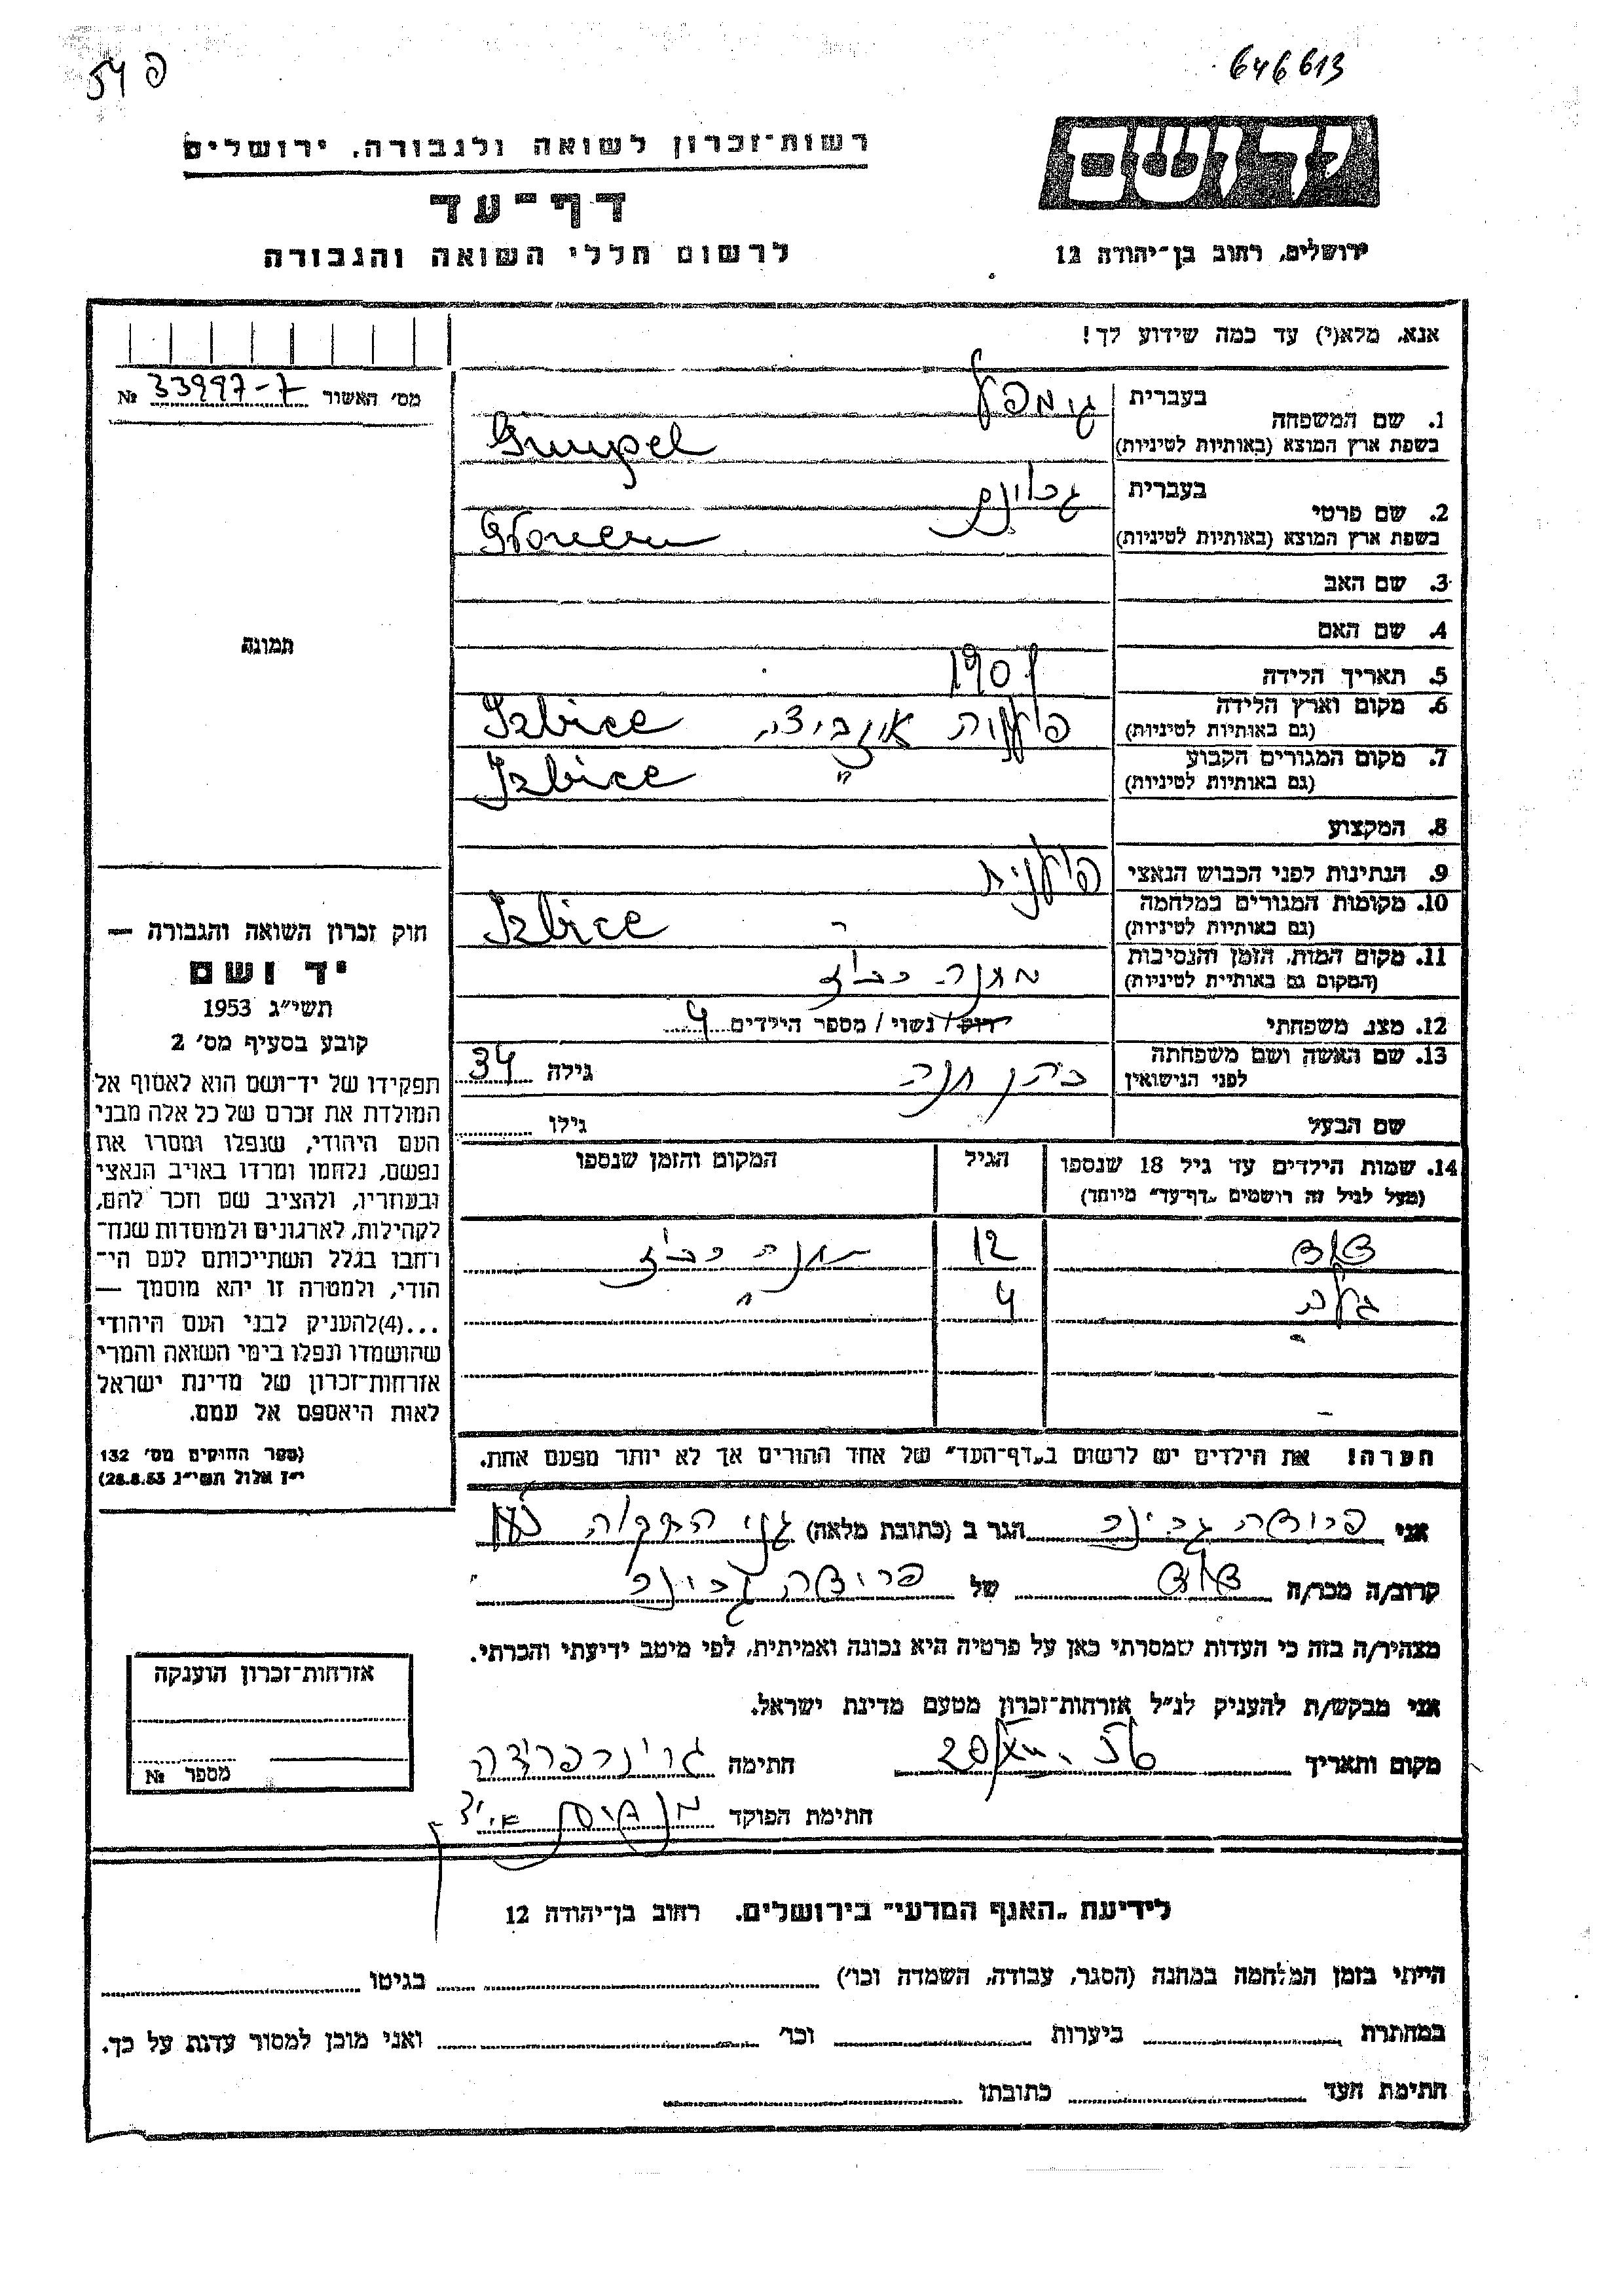 54 פ
646613
רשות־זכרון לשואה ולגבורה, ירושלים
ידושם
דף־עד
לרשום חללי השואה והגבורה
ירושלים, רחוב בן־יהודה 12
אנא, מלא(י) עד כמה שידוע לך!
מס׳ האשור 33997-7 №
1. שם המשפחה
בעברית גימפל
בשפת ארץ המוצא (באותיות לטיניות) Gimpel
2. שם פרטי
בעברית
בשפת ארץ המוצא (באותיות לטיניות)
3. שם האב
4. שם האם
תמונה
5. תאריך הלידה 1901
6. מקום וארץ הלידה
(גם באותיות לטיניות) פולניה איזביצה Izbice
7. מקום המגורים הקבוע
(גם באותיות לטיניות) " Izbice
8. המקצוע
9. הנתינות לפני הכבוש הנאצי פולנית
10. מקומות המגורים במלחמה
(גם באותיות לטיניות) Izbice
11. מקום המות, הזמן והנסיבות
(המקום גם באותיית לטיניות) מחנה
12. מצב משפחתי רווק/ נשוי/ מספר הילדים 4
13. שם האשה ושם משפחתה
לפני הנישואין חנה גילה 34
שם הבעל גילו
14. שמות הילדים עד גיל 18 שנספו
(מעל לגיל זה רושמים „דף־עד״ מיוחד)
הגיל
המקום והזמן שנספו
12 מחנה
4 "
הערה! את הילדים יש לרשום ב„דף־העד״ של אחד ההורים אך לא יותר מפעם אחת.
חוק זכרון השואה והגבורה —
יד ושם
תשי״ג 1953
קובע בסעיף מס׳ 2
תפקידו של יד־ושם הוא לאסוף אל
המולדת את זכרם של כל אלה מבני
העם היהודי, שנפלו ומסרו את
נפשם, נלחמו ומרדו באויב הנאצי
ובעוזריו, ולהציב שם וזכר להם,
לקהילות, לארגונים ולמוסדות שנח־
רבו בגלל השתייכותם לעם הי־
הודי, ולמטרה זו יהא מוסמך —
...(4)להעניק לבני העם היהודי
שהושמדו ונפלו בימי השואה והמרי
אזרחות־זכרון של מדינת ישראל
לאות היאספם אל עמם.
(ספר החוקים מס׳ 132
י״ז אלול תשי״ג 28.8.53)
אני פרידה גרינר הגר ב (כתובת מלאה) גני התקוה
קרוב/ה מכר/ה דוד של פרידה גרינר
מצהיר/ה בזה כי העדות שמסרתי כאן על פרטיה היא נכונה ואמיתית, לפי מיטב ידיעתי והכרתי.
אני מבקש/ת להעניק לנ״ל אזרחות־זכרון מטעם מדינת ישראל.
מקום ותאריך 20/XII. 56 חתימה גרינר פרידה
חתימת הפוקד
אזרחות־זכרון הוענקה
מספר №
לידיעת „האגף המדעי״ בירושלים, רחוב בן־יהודה 12
הייתי בזמן המלחמה במחנה (הסגר, עבודה, השמדה וכו׳) בגיטו
במחתרת ביערות וכו׳ ואני מוכן למסור עדות על כך.
חתימת העד כתובתו